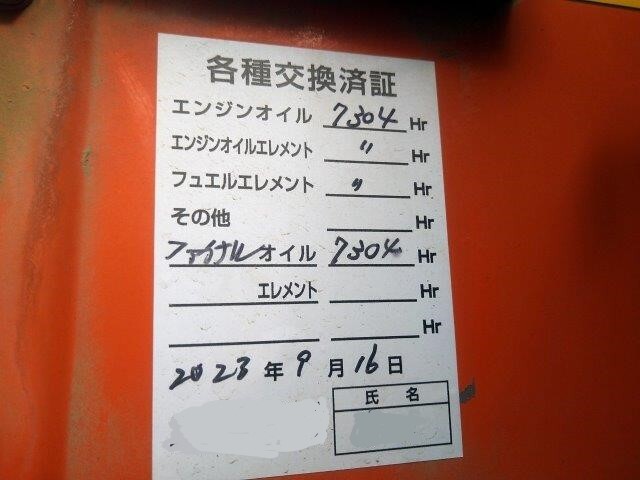 各種交換済証
エンジンオイル 7304 Hr
エンジンオイルエレメント 〃 Hr
フュエルエレメント 〃 Hr
その他 Hr
ファイナルオイル 7304 Hr
エレメント Hr
Hr
2023年9月16日
氏名